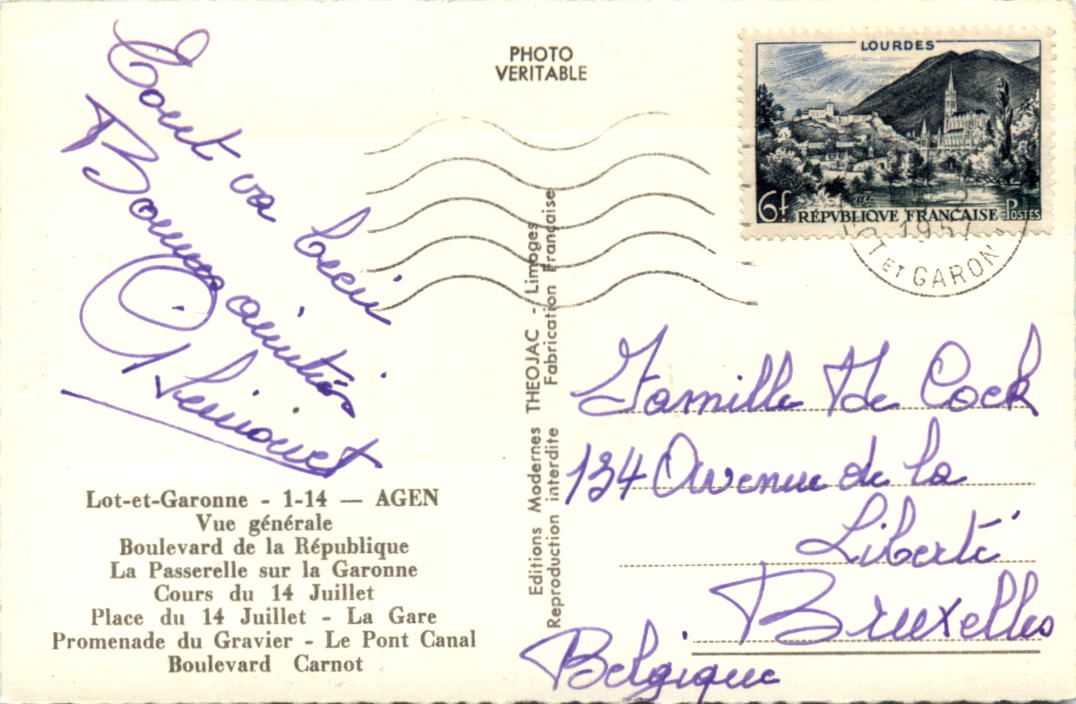 Tout va bien
Bonnes amitiés
PHOTO
VERITABLE
LOURDES
6f RÉPVBLIQVE FRANÇAISE POSTES
1957
LOT ET GARONNE
Editions Modernes THEOJAC - Limoges
Reproduction interdite Fabrication Française
Famille De Cock
134 Avenue de la
Liberté
Bruxelles
Belgique
Lot-et-Garonne - 1-14 — AGEN
Vue générale
Boulevard de la République
La Passerelle sur la Garonne
Cours du 14 Juillet
Place du 14 Juillet - La Gare
Promenade du Gravier - Le Pont Canal
Boulevard Carnot